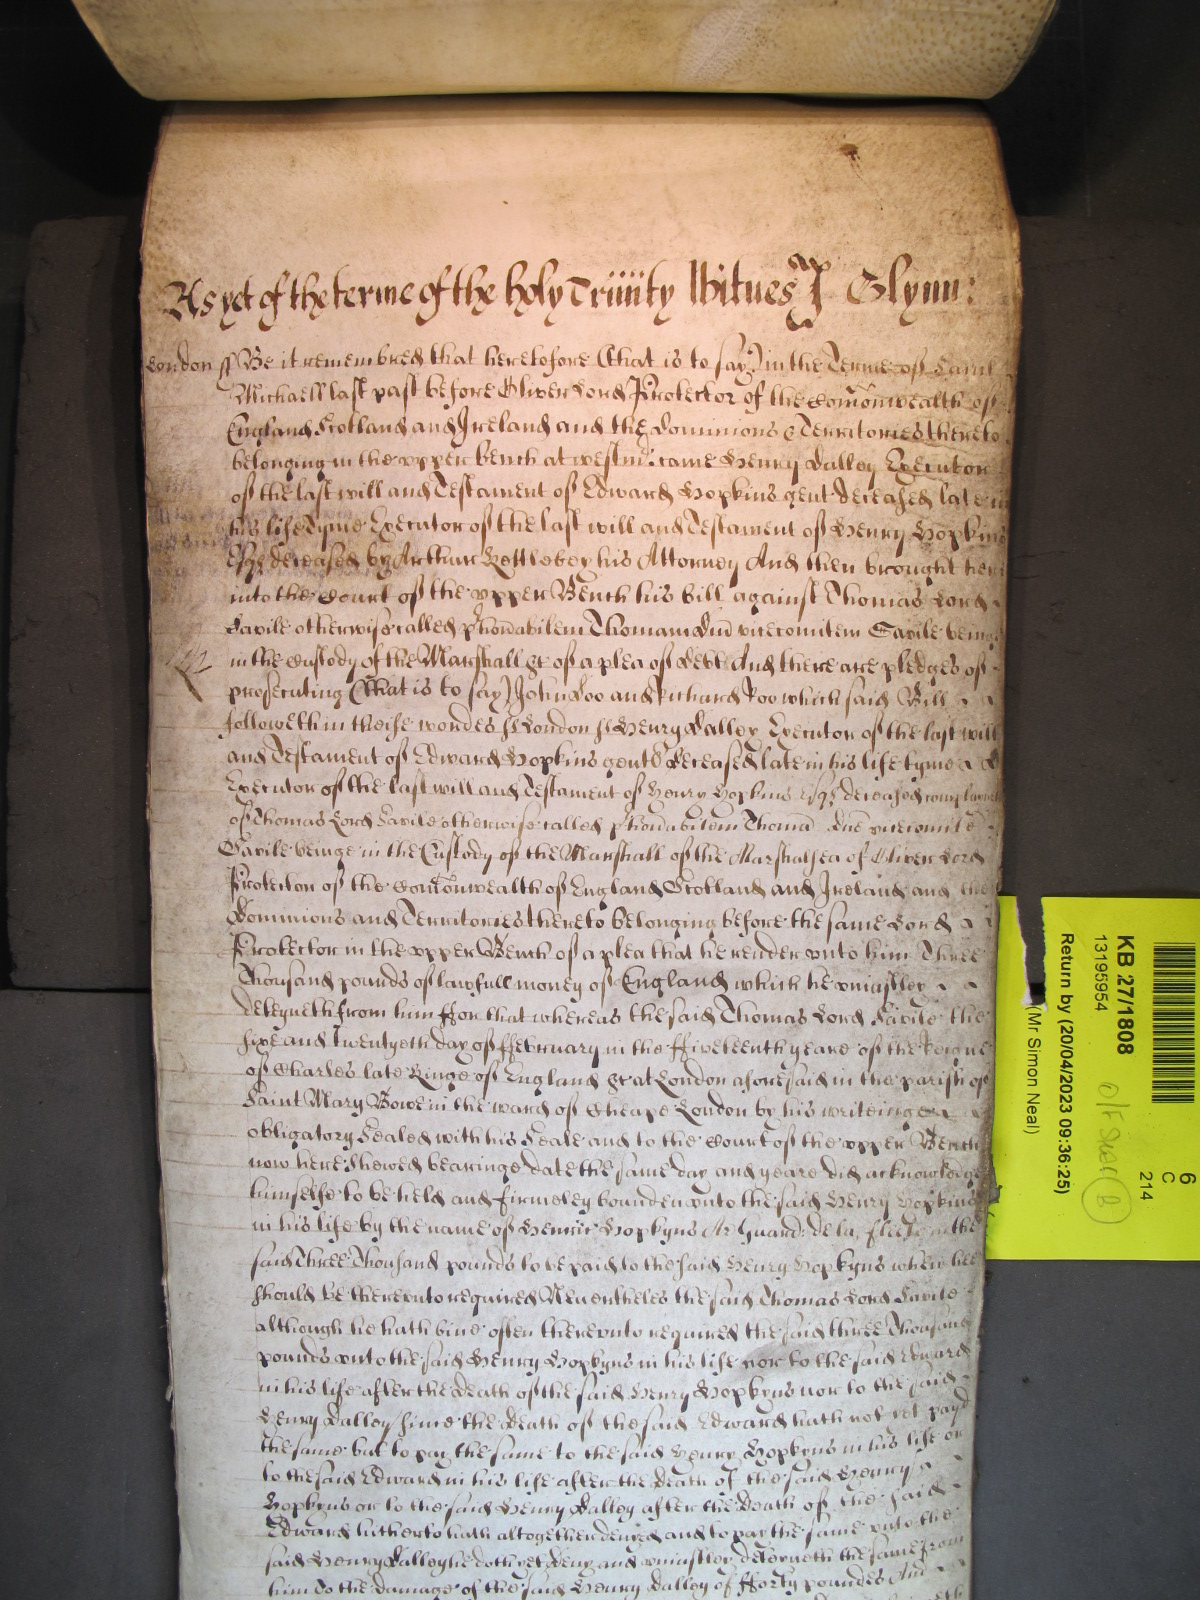 As yet of the terme of the holy Trinity Witnes J Glynn:
London ss Be it remembred that heretofore (that is to say) in the Terme of Saint
Michaell last past before Oliver Lord Protector of the Comonwealth of
England Scotland and Ireland and the Dominions & Territories thereto
belonging in the vpper bench at westmr. came Henry Dalley Executor
of the last will and Testament of Edward Hopkins gent deceased late in
his life Tyme Executor of the last will and Testament of Henry Hopkins
Esqr deceased by Arthur his Attorney And then brought here
into the Court of the vpper Bench his bill against Thomas Lord
Savile otherwise called Thomam Dnm vicecomitem Savile being
in the Custody of the Marshall &c of a plea of debt And there are pledges of
prosecuting (that is to say) John Doo and Richard Roo which said Bill
followeth in theise wordes ss London ss Henry Dalley Executor of the last will
and Testament of Edward Hopkins gent deceased late in his life tyme
Executor of the last will and Testament of Henry Hopkins Esqr deceased
of Thomas Lord Savile otherwise called Thomam Dnm vicecomite
Savile beinge in the Custody of the Marshall of the Marshalsea of Oliver Lord
Protector of the Comonwealth of England Scotland and Ireland and the
Dominions and Territories thereto belonging before the same Lord
Protector in the vpper Bench of a plea that he render vnto him Three
Thousand pounds of lawfull money of England which he vniustley
deteyneth from him ffor that whereas the said Thomas Lord Savile the
sixe and Twentyeth day of ffebruary in the ffiveteenth yeare of the Reigne
of Charles late Kinge of England &c at London aforesaid in the parish of
Saint Mary Bowe in the ward of Cheape London by his writeinge
obligatory Sealed with his Seale and to the Court of the vpper Bench
now here shewed bearinge date the same day and yeare did acknowledge
himselfe to be held and firmeley bounden vnto the said Henry Hopkins
in his life by the name of Henrie Hopkyns Ar Guard: de la Fleete in the
said Three Thousand pounds to be paid to the said Henry Hopkyns when hee
should be therevnto required Neuertheles the said Thomas Lord Savile
although he hath bine often therevnto required the said three Thousand
pounds vnto the said Henry Hopkyns in his life nor to the said Edward
in his life after the death of the said Henry Hopkyns nor to the said
Henry Dalley since the death of the said Edward hath not yet payd
the same but to pay the same to the said Henry Hopkyns in his life or
to the said Edward in his life after the death of the said Henry
Hopkyns or to the said Henry Dalley after the Death of the said
Edward hitherto hath altogether denyed and to pay the same vnto the
said Henry Dalley he doth yet deny and vniustley deteyneth the same from
him To the damage of the said Henry Dalley of fforty poundes And
6
C
214
KB 27/1808
13195954
Return by (20/04/2023 09:36:25)
(Mr Simon Neal)
B